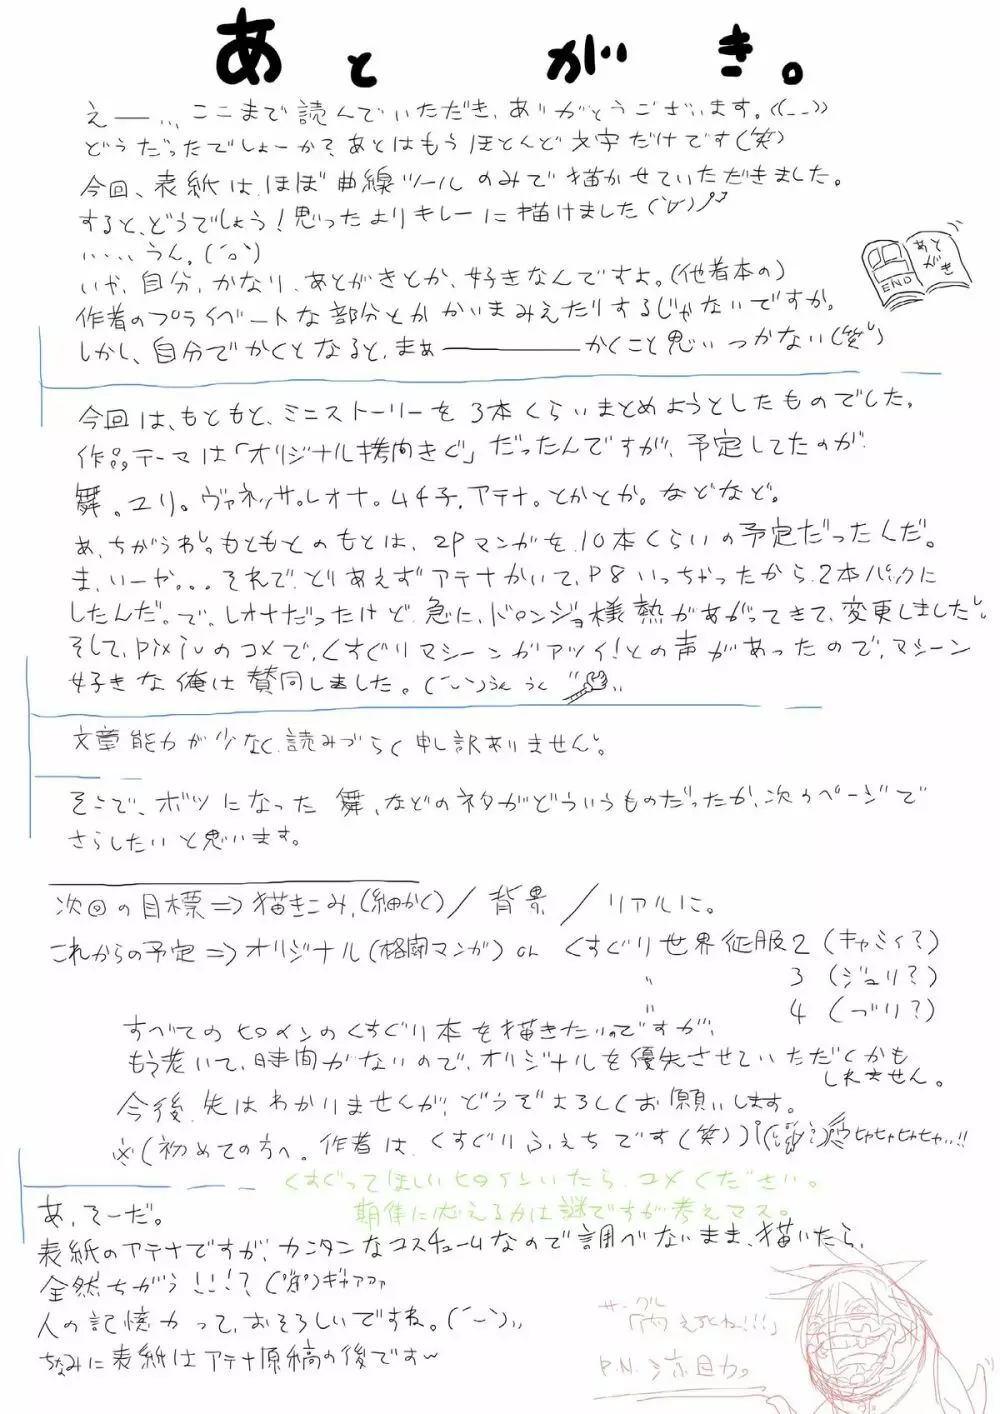 あとがき。
えー… ここまで読んでいただき、ありがとうございます。((_ _))
どうだったでしょーか?あとはもうほとんど文字だけです(笑)
今回、表紙は、ほぼ曲線ツールのみで描かせていただきました。
すると、どうでしょう!思ったよりキレーに描けました(´∀`)
……うん。(´o`)
いや、自分、かなり、あとがきとか、好きなんですよ。(他者本の)
作者のプライベートな部分とかかいまみえたりするじゃないですか。
しかし、自分でかくとなると、まぁーーーーかくこと思いつかない(笑)
あとがき
END
今回は、もともと、ミニストーリーを3本くらいまとめようとしたものでした。
作品テーマは「オリジナル拷問きぐ」だったんですが、予定してたのが
舞。ユリ。ヴァネッサ。レオナ。ムチ子。アテナ。とかとか。などなど。
あ、ちがうわ。もともとのもとは、2Pマンガを、10本くらいの予定だったんだ。
ま、いーや。。。それで、とりあえずアテナかいて、P8いっちゃったから、2本パックに
したんだ。で。レオナだったけど、急に、ドロンジョ様熱があがってきて、変更しました。
そして、pixivのコメで、くすぐりマシーンがアツイ!との声があったので、マシーン
好きな俺は賛同しました。(´ー`)うん うん
文章能力が少なく、読みづらく申し訳ありません。
そこで、ボツになった舞、などのネタがどういうものだったか、次のページで
さらしたいと思います。
次回の目標⇒描きこみ(細かく)/背景/リアルに。
これからの予定⇒オリジナル(格闘マンガ)or くすぐり世界征服2(キャミィ?)
〃 3(ジュリ?)
〃 4(づり?)
すべてのヒロインのくすぐり本を描きたいのですが、
もう老いて、時間がないので、オリジナルを優先させていただくかも
しれません。
今後、先はわかりませんが、どうぞよろしくお願いします。
※(初めての方へ。作者は、くすぐりふぇちです(笑))
くすぐってほしいヒロインいたら、コメください。
期待に応えるかは謎ですが考えマス。
あ、そーだ。
表紙のアテナですが、カンタンなコスチュームなので調べないまま、描いたら、
全然ちがう!!!?(゚д゚)ギャアアァ
人の記憶力って、おそろしいですね。(´ー`)
ちなみに表紙はアテナ原稿の後です〜
サークル
P.N.